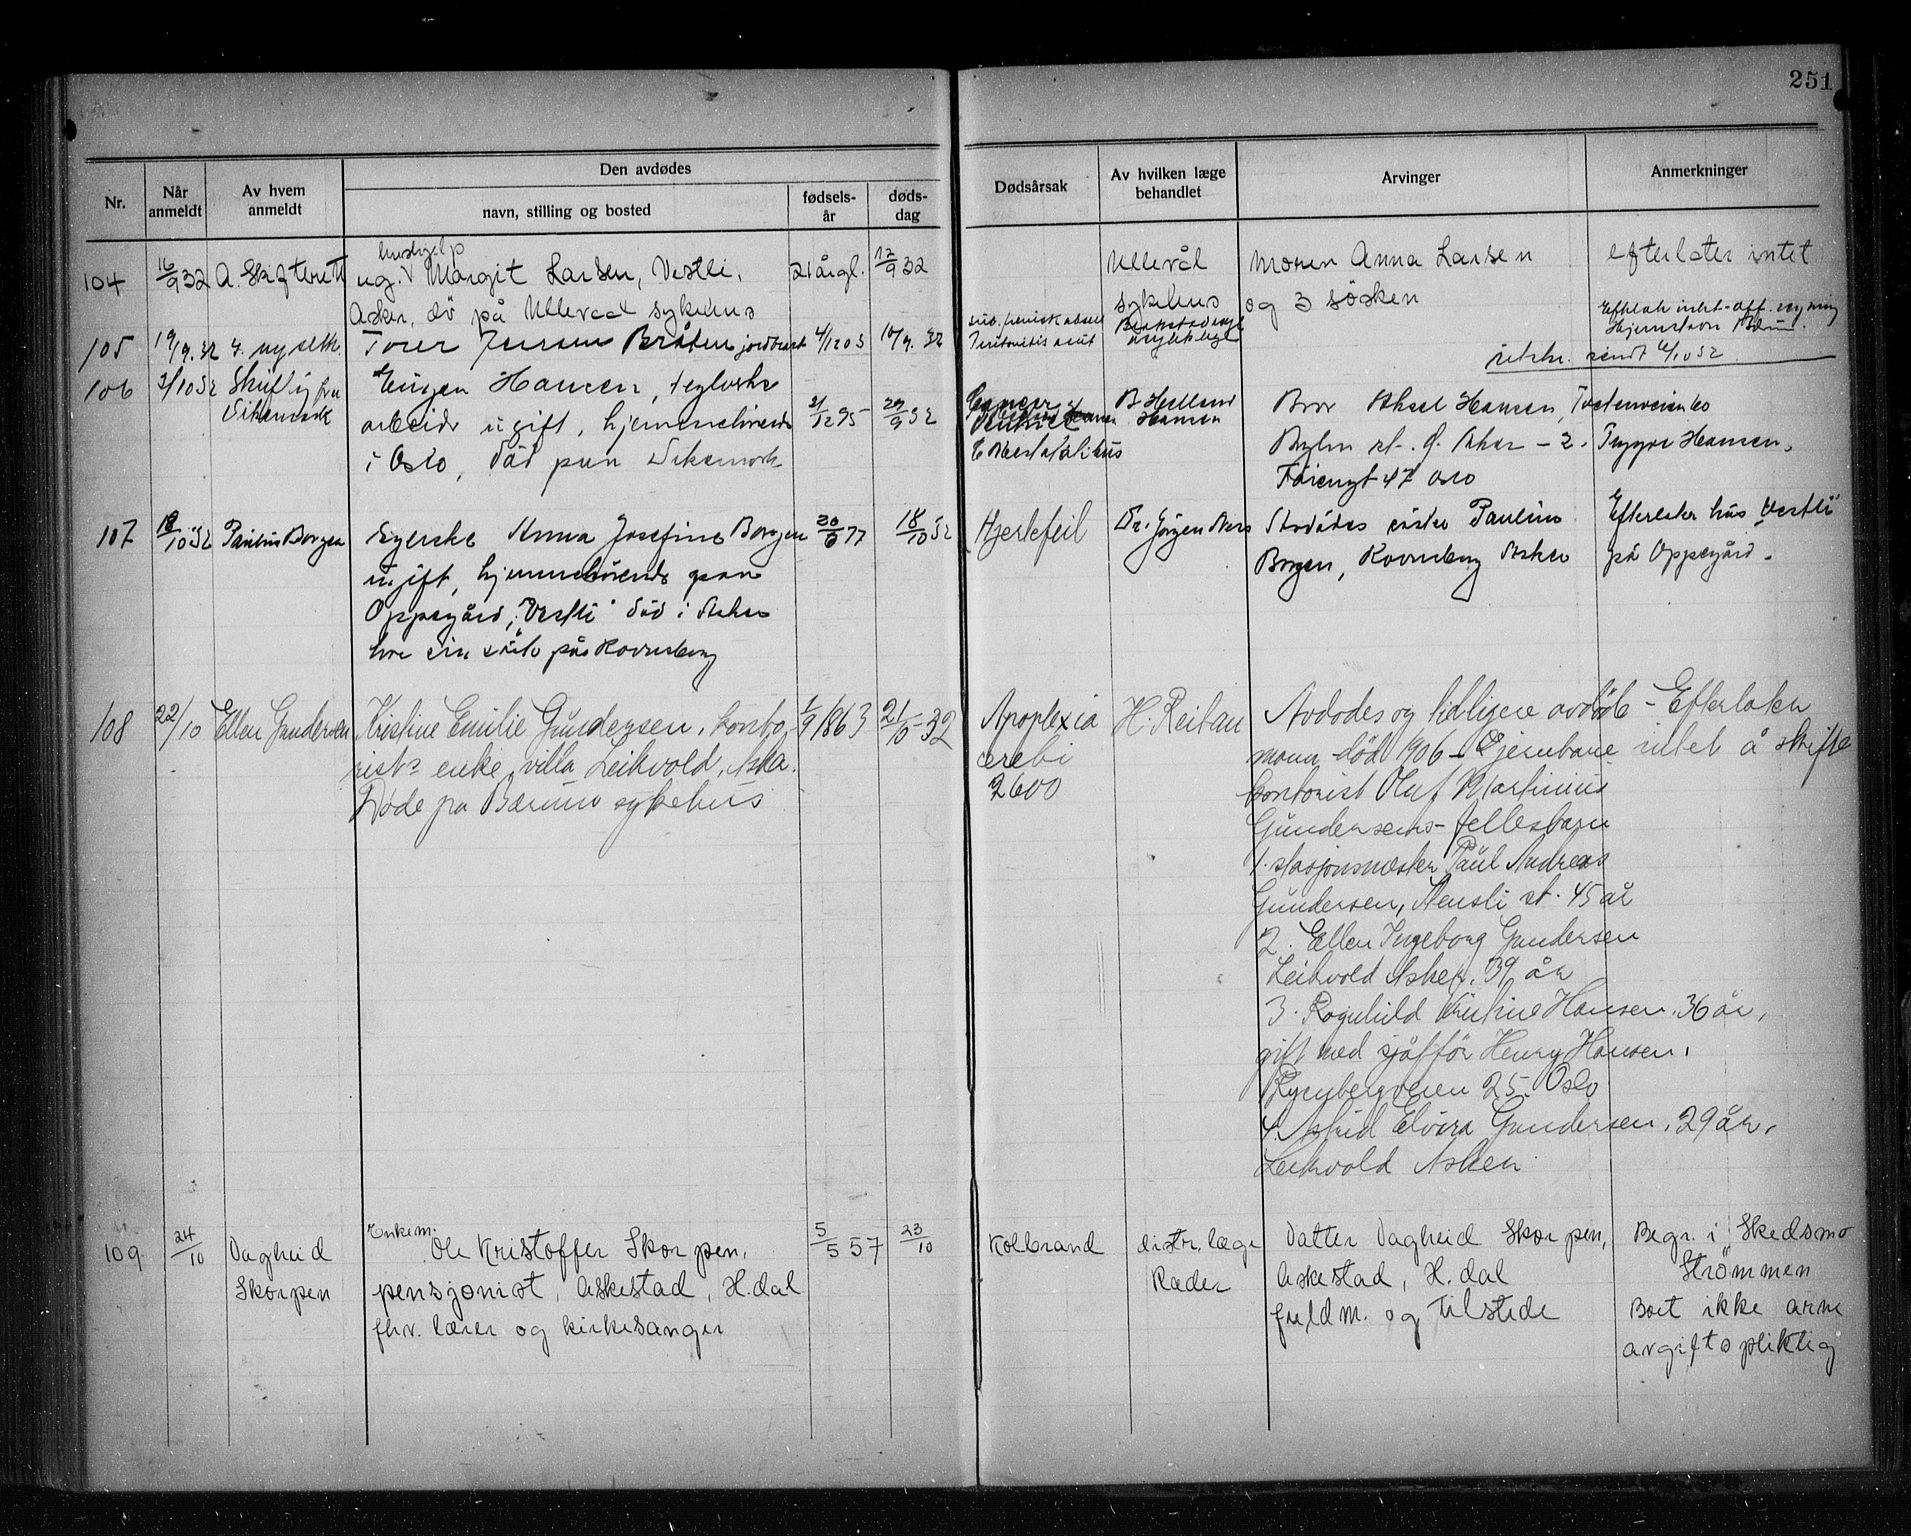 251
Den avdødes
Nr.
Når anmeldt
Av hvem anmeldt
navn, stilling og bosted
fødsels-år
døds-dag
Dødsårsak
Av hvilken læge behandlet
Arvinger
Anmerkninger
104 16/9 32 A. Skifterett
hushjelp
ug. V Margit Larsen, Vestli,
Asker, dö på Ullevål sykehus
21 årgl. 12/9 32
Ullevål
sykehus
Moren Anna Larsen
og 3 søsken
efterlater intet
105 19/9.32
Torer Jensen Bråten jordbruk
4/12 03 10/9. 32
Peritonitis acut
Efterlate intet - off.
Hjemstavn
utskr. sendt 6/10 32
106 3/10 32
Eugen Hansen,
arbeider ugift, hjemmehörende
i Oslo, död paa Dikemark
21/12 95 29/9 32
Cancer
B Helland
Hansen
Bror Aksel Hansen, Tvetenveien 60
Bryn st. Ø. Aker - 2. Trygve Hansen,
47 Oslo
107 18/10 32 Paulus Borgen
Eyerske Anna Josefine Borgen
ugift, hjemmehörende paa
Oppegård, "Vestli" död i Asker
hos sin på Rovnsberg
20/6 77 18/10 32
Hjertefeil
Dr. Jörgen
Avdødes Paulus
Borgen, Rovnsberg Asker
Efterlater hus "Vestli"
på Oppegård.
108 22/10 Ellen Gundersen
Kristine Emilie Gundersen, konto-
rists enke, villa Leikvold, Aska.
Døde på Bærum sykehus
1/9 1863 21/10-32
Apoplexia
cerebi
2600
H. Reitan
Avdødes og tidligere avdøde
mann - død 1906 - Jernbane
kontorist Oluf Martinius
Gundersens - fellesbarn
1. stasjonsmester Paul Andreas
Gundersen, Aensli st. 45 år
2. Ellen Ingeborg Gundersen
Leikvold Asker. 39 år
3. Ragnhild Kristine Hansen. 36 år,
gift med sjåffør Henry Hansen.
25. Oslo
4. Astrid Elvira Gundersen, 29 år,
Leikvold Asker
- Efterlater
intet å skifte
109 24/10 Dagheid
Skorpen
Enkem.
Ole Kristoffer Skorpen,
pensjonist, Askestad, H.dal
fhv. lærer og kirkesanger
5/5 57 23/10
Kolbrand
distr.læge
Ræder
Datter Dagheid Skorpen,
Askestad, H. dal
fuldm. og tilstede
Begr. i Skedsmo
Strømmen
Boet ikke arve
avgiftspliktig